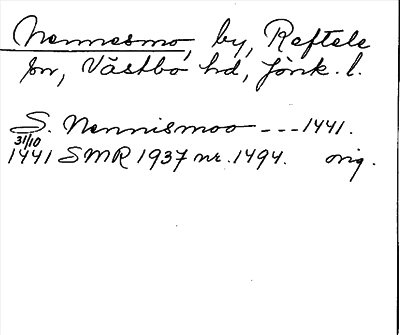 Nennesmo, by, Reftele
sn, Västbo hd, Jönk. l.
S. Nennismoo --- 1441.
31/10
1441 SMR 1937 nr. 1494. orig.